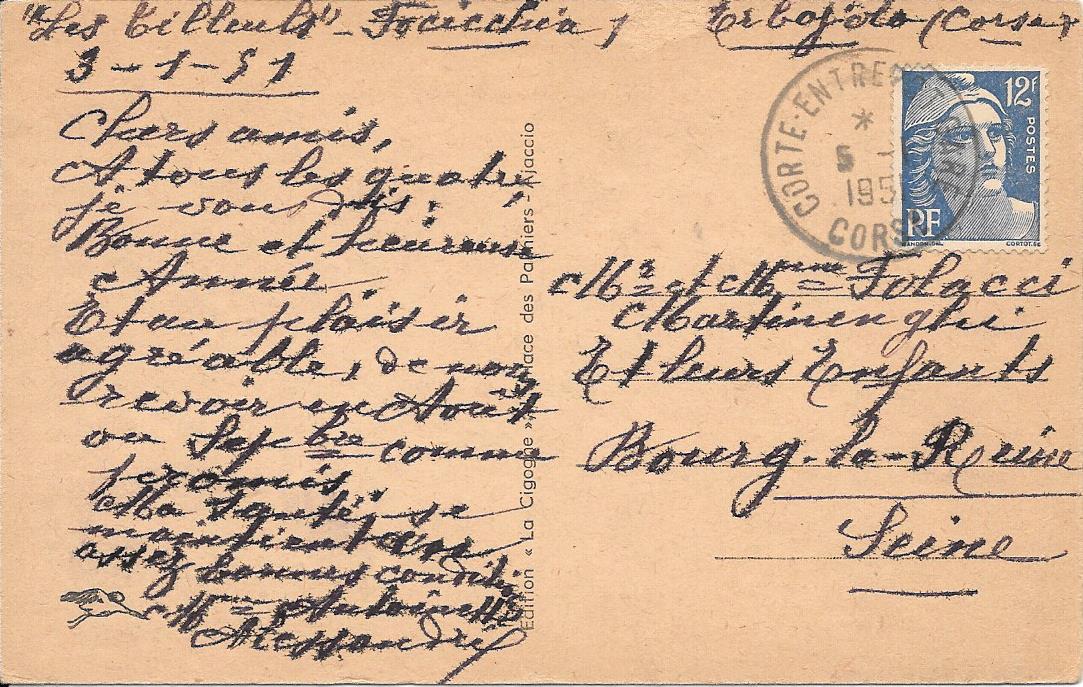 "Les Tilleuls" - Focicchia, Erbajolo (Corse)
3-1-51
Chers amis,
A tous les quatre
je vous dis:
Bonne et heureuse
Année.
Et au plaisir
agréable, de nous
revoir en Août
ou Sepbre comme
promis.
Ma santé, se
maintient dans
assez bonnes conditi
Mme Antoinette
Alessandri
Edition « La Cigogne » Place des Palmiers - Ajaccio
CORTE-ENTREPOT GARE
*
5 -
195
CORSE
12F
POSTES
RF
GANDON.DEL.
CORTOT.SC
Mr et Mme Folacci
Martinenghi
Et leurs Enfants
Bourg-la-Reine
Seine